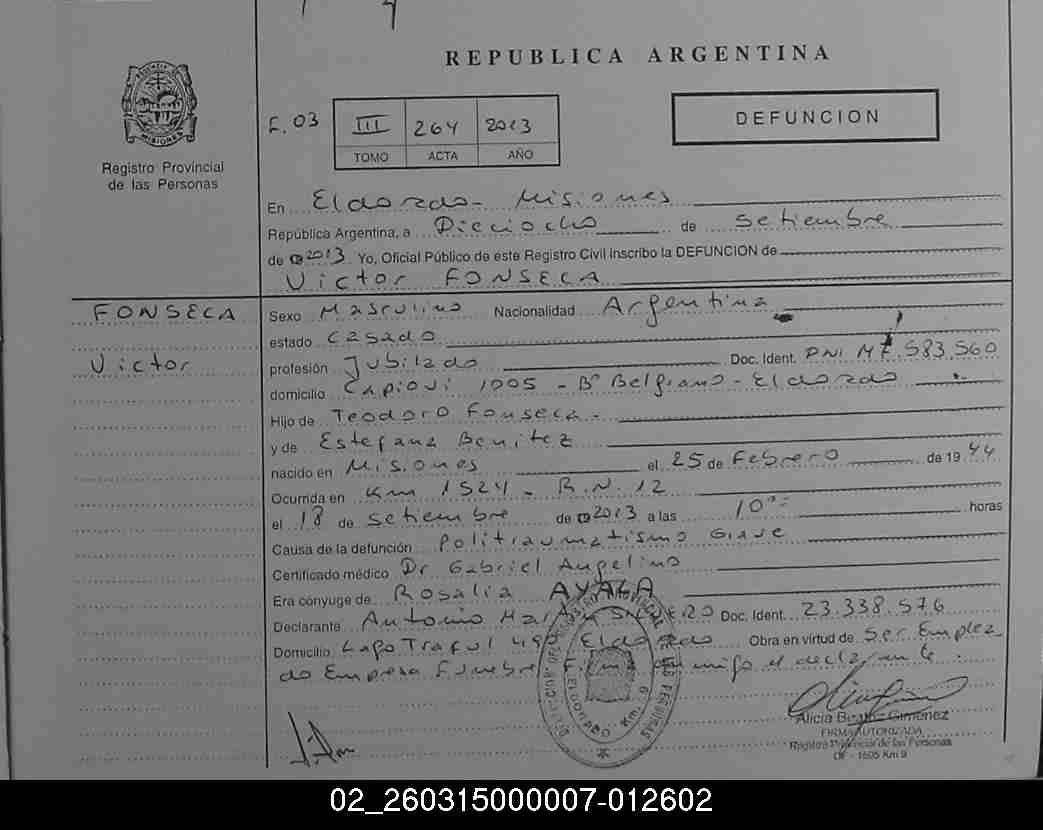 REPUBLICA ARGENTINA
PROVINCIA DE MISIONES
Registro Provincial
de las Personas
F. 03 III 264 2013
TOMO ACTA AÑO
DEFUNCION
En Eldorado - Misiones
República Argentina, a Dieciocho de Setiembre
de 2013 Yo, Oficial Público de este Registro Civil inscribo la DEFUNCION de
Victor FONSECA
FONSECA
Victor
Sexo Masculino Nacionalidad Argentina
estado Casado
profesión Jubilado Doc. Ident. DNI M7.583.560
domicilio Capiovi 1005 - Bº Belgrano - Eldorado
Hijo de Teodoro Fonseca -
y de Estefana Benitez
nacido en Misiones el 25 de Febrero de 1944
Ocurrida en Km 1524 - R.N. 12
el 18 de Setiembre de 2013 a las 10 horas
Causa de la defunción Politraumatismo Grave
Certificado médico Dr Gabriel Angelino
Era cónyuge de Rosalia AYALA
Declarante Antonio Doc. Ident. 23.338.576
Domicilio Lago Traful 490 Eldorado Obra en virtud de Ser Emplea
do Empresa Funebre Firma conmigo el declarante.
Alicia Beatriz Gimenez
FIRMA AUTORIZADA
Registro Provincial de las Personas
OF - 1605 Km 9
02_260315000007-012602